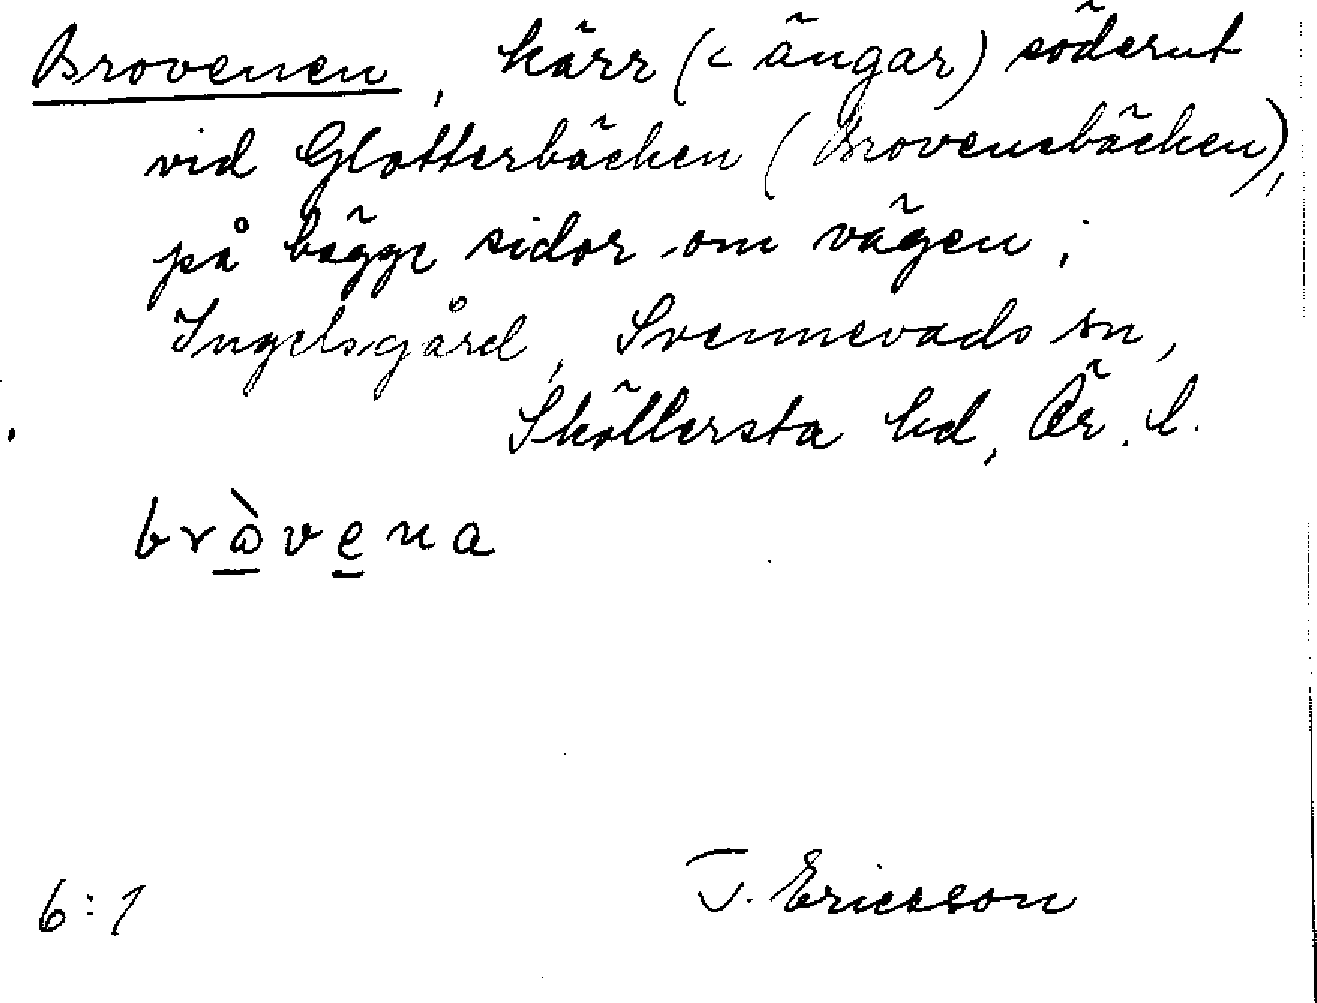 Brovenen, kärr (< ängar) söderut
vid Glotterbäcken (Brovensbäcken),
på bägge sidor om vägen;
Ingelsgård, Svennevads sn,
Sköllersta hd, Ör. l.
brὼvena
6:1 T. Ericsson